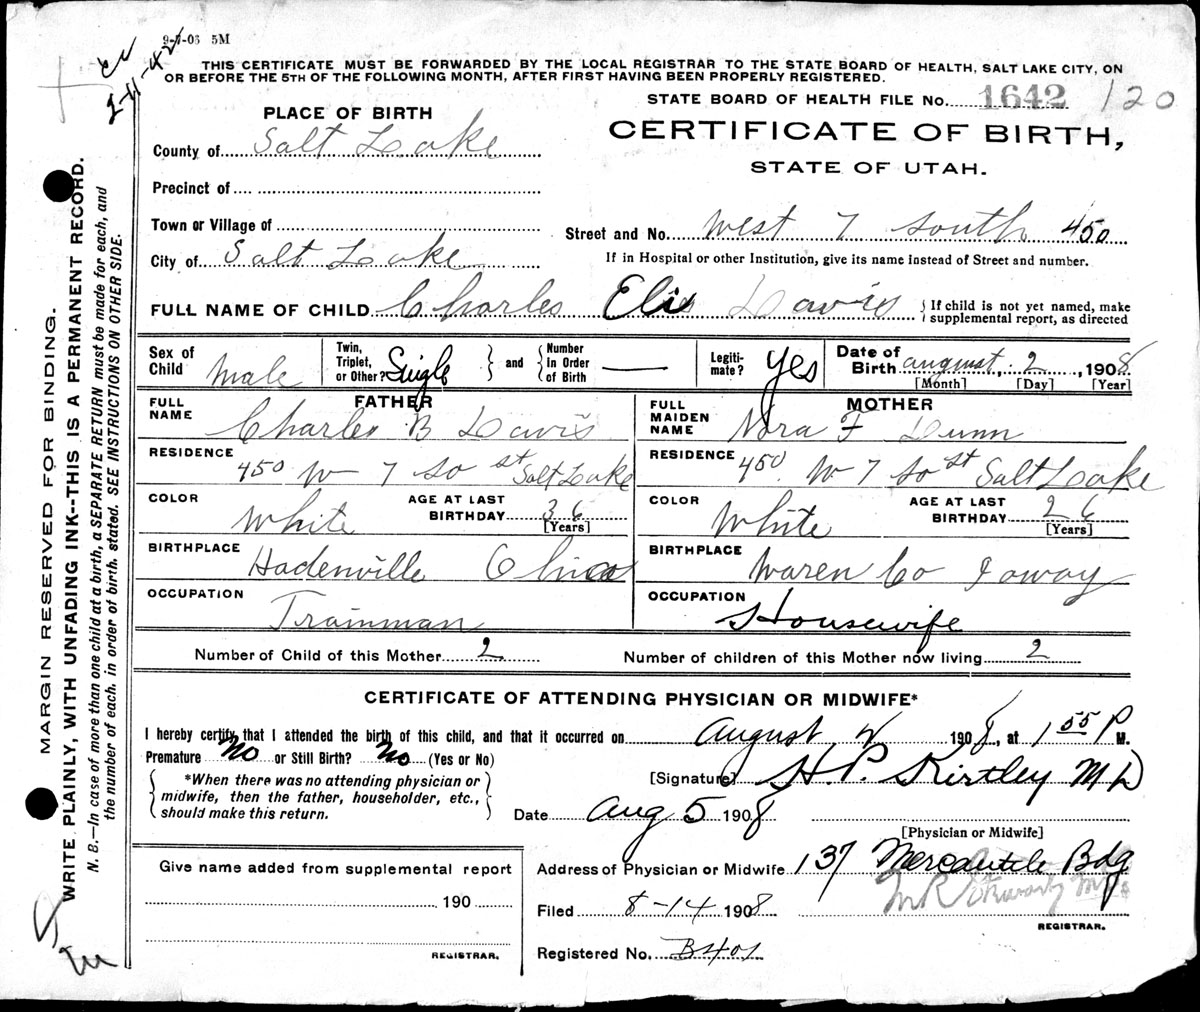 9-7-06 5M
2-11-42
THIS CERTIFICATE MUST BE FORWARDED BY THE LOCAL REGISTRAR TO THE STATE BOARD OF HEALTH, SALT LAKE CITY, ON
OR BEFORE THE 5TH OF THE FOLLOWING MONTH, AFTER FIRST HAVING BEEN PROPERLY REGISTERED.
STATE BOARD OF HEALTH FILE No. 1642 120
PLACE OF BIRTH
CERTIFICATE OF BIRTH,
STATE OF UTAH.
County of Salt Lake
Precinct of
Town or Village of
Street and No. West 7 South 450
City of Salt Lake
If in Hospital or other Institution, give its name instead of Street and number.
FULL NAME OF CHILD Charles Davis
{ If child is not yet named, make
supplemental report, as directed
Sex of Child Male
Twin, Triplet, or Other? Single } and { Number In Order of Birth —
Legiti-mate? Yes
Date of Birth august, 2, 1908
[Month] [Day] [Year]
FATHER
MOTHER
FULL NAME Charles B Davis
FULL MAIDEN NAME Nora F Dunn
RESIDENCE 450 W 7 So st Salt Lake
RESIDENCE 450. W 7 So st Salt Lake
COLOR White AGE AT LAST BIRTHDAY 36 [Years]
COLOR White AGE AT LAST BIRTHDAY 26 [Years]
BIRTHPLACE Hadenville Ohio
BIRTHPLACE Waren Co Ioway
OCCUPATION Trainman
OCCUPATION Housewife
Number of Child of this Mother 2
Number of children of this Mother now living 2
CERTIFICATE OF ATTENDING PHYSICIAN OR MIDWIFE*
I hereby certify that I attended the birth of this child, and that it occurred on August 2 1908, at 1 55 P M.
Premature No or Still Birth? No (Yes or No)
{ *When there was no attending physician or
midwife, then the father, householder, etc.,
should make this return. }
[Signature] H. P. Kirtley M D
Date Aug 5 1908
[Physician or Midwife]
Give name added from supplemental report
190
REGISTRAR.
Address of Physician or Midwife 137 Mercantile Bdg
Filed 8-14 1908
REGISTRAR.
Registered No. B401
MARGIN RESERVED FOR BINDING.
WRITE PLAINLY, WITH UNFADING INK--THIS IS A PERMANENT RECORD.
N. B.—In case of more than one child at a birth, a SEPARATE RETURN must be made for each, and
the number of each, in order of birth, stated. SEE INSTRUCTIONS ON OTHER SIDE.